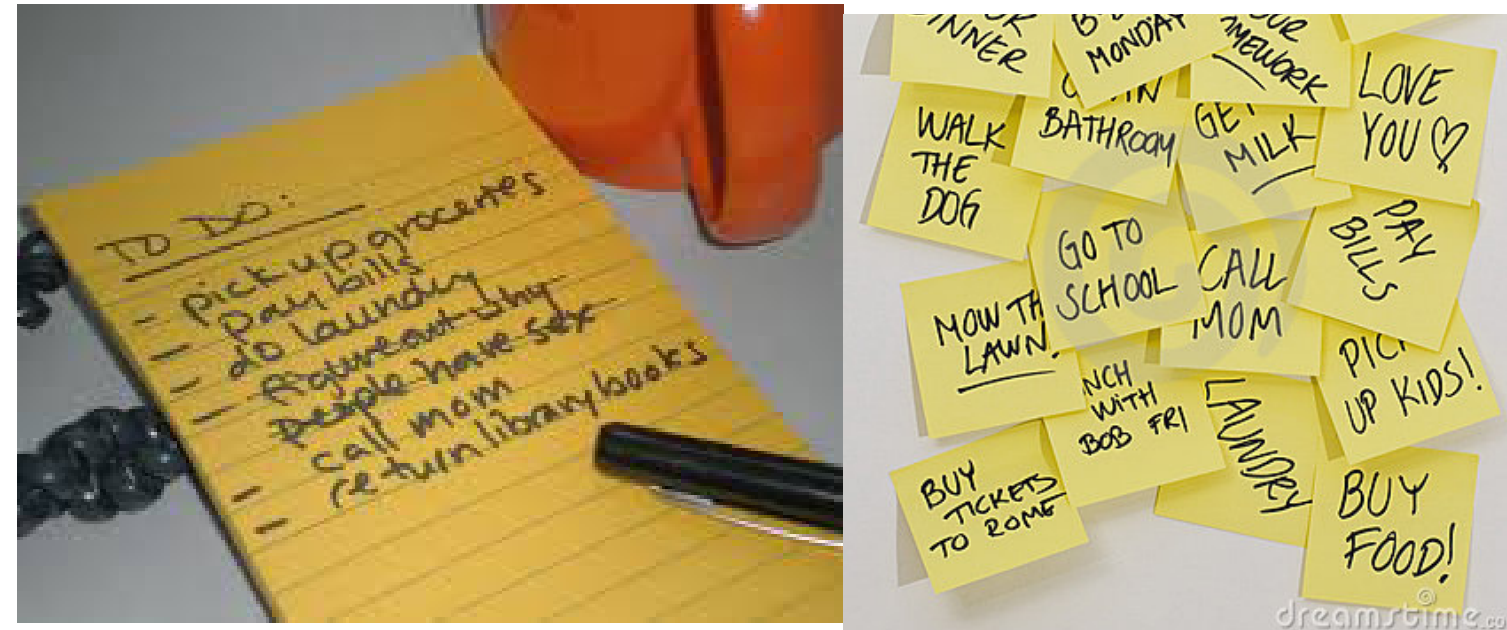 TO DO:
- pick up groceries
- pay bills
- do laundry
- figure out why
people have sex
- call mom
- return library books
DINNER
MONDAY
LOVE
YOU ♡
WALK
THE
DOG
BATHROOM
GET
MILK
GO TO
SCHOOL
CALL
MOM
PAY
BILLS
MOW TH
LAWN!
NCH
WITH
BOB FRI
LAUNDRY
PIC
UP KIDS!
BUY
TICKETS
TO ROME
BUY
FOOD!
dreamstime.co